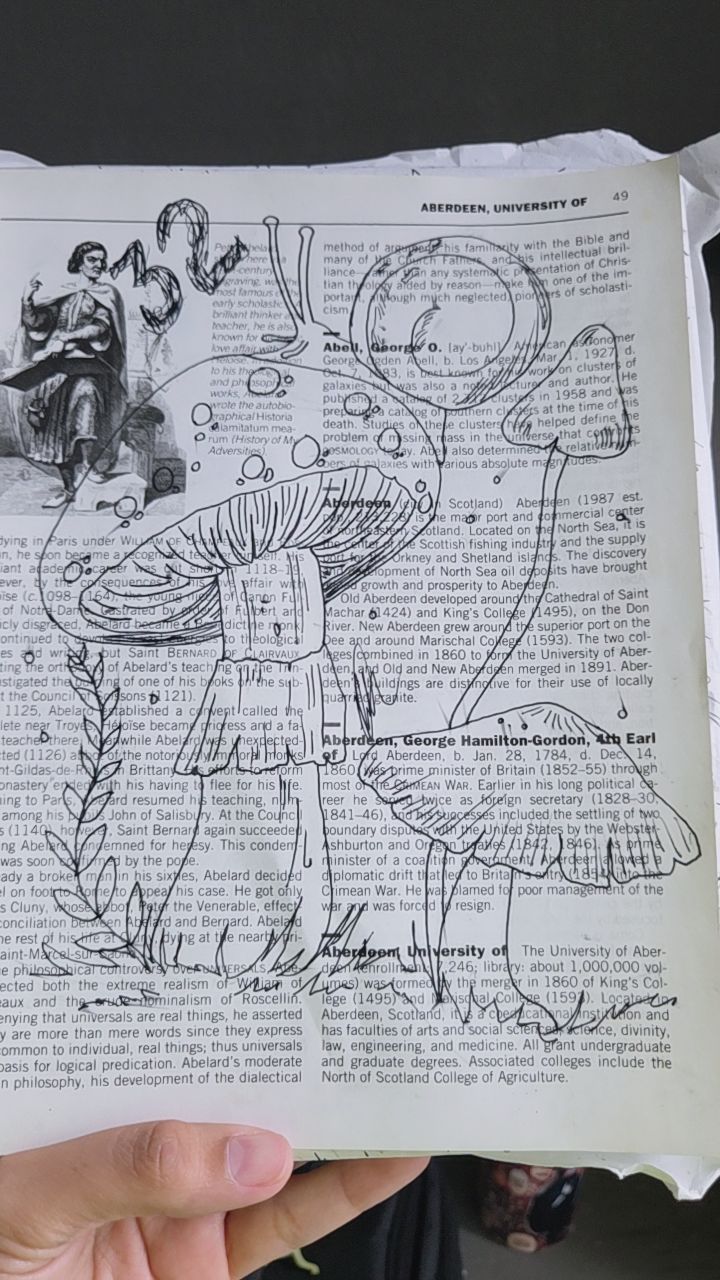 ABERDEEN, UNIVERSITY OF 49
32
Pe Abela
here
-century
graving, w
most famous
early scholast
brilliant thinker
teacher, he is also
known for
love affair with
Heloise.
to his theolog
and philosoph
works, Abelard
wrote the autobio-
graphical Historia
calamitatum mea-
rum (History of My
Adversities).
dying in Paris under WILLIAM OF
n, he soon became a recognized teacher himself. His
iant academic career was cut short 1118-1
ever, by the consequences of his love affair with
ise (c.1098-1164), the young niece of Canon Ful-
of Notre-Dame. Castrated by order of Fulbert and
icly disgraced, Abelard became a Benedictine monk
ontinued to devote to theological
es and writing, but Saint BERNARD OF CLAIRVAUX,
ting the orthodoxy of Abelard's teaching on the Trin-
stigated the burning of one of his books on the sub-
t the Council of Soissons (1121).
1125, Abelard established a convent called the
lete near Troyes. Héloïse became prioress and a fa-
teacher there. Meanwhile Abelard was unexpected-
cted (1126) abbot of the notoriously immoral monks
nt-Gildas-de-R in Brittany. efforts to reform
monastery ended with his having to flee for his life.
ning to Paris, Abelard resumed his teaching, n
among his pupils John of Salisbury. At the Council
s (1140), however, Saint Bernard again succeeded
ng Abelard condemned for heresy. This condem-
was soon confirmed by the pope.
ady a broken man in his sixties, Abelard decided
el on foot to Rome to appeal his case. He got only
s Cluny, whose abbot, Peter the Venerable, effect
nciliation between Abelard and Bernard. Abelard
he rest of his life at dying at the nearby pri-
aint-Marcel-sur-Saône.
e philosophical controversy over UNIVERSALS, Abe-
ected both the extreme realism of William of
eaux and the nominalism of Roscellin.
enying that universals are real things, he asserted
y are more than mere words since they express
common to individual, real things; thus universals
basis for logical predication. Abelard's moderate
n philosophy, his development of the dialectical
method of argument, his familiarity with the Bible and
many of the Church Fathers, and his intellectual bril-
liance—rather than any systematic presentation of Chris-
tian theology aided by reason—make him one of the im-
portant, although much neglected, pioneers of scholasti-
cism.
Abell, George O. [ay'-buhl] American astronomer
George Ogden Abell, b. Los Angeles, Mar. 1, 1927, d.
Oct. 7, 1983, is best known for his work on clusters of
galaxies but was also a noted lecturer and author. He
published a catalog of 2,712 clusters in 1958 and was
preparing a catalog of southern clusters at the time of his
death. Studies of the clusters have helped define the
problem of missing mass in the universe that concerns
COSMOLOGY today. Abell also determined the relative num-
bers of galaxies with various absolute magnitudes.
Aberdeen (city in Scotland) Aberdeen (1987 est.
pop., 213,228) is the major port and commercial center
of northeastern Scotland. Located on the North Sea, it is
the center of the Scottish fishing industry and the supply
port for the Orkney and Shetland islands. The discovery
and development of North Sea oil deposits have brought
rapid growth and prosperity to Aberdeen.
Old Aberdeen developed around the Cathedral of Saint
Machar (1424) and King's College (1495), on the Don
River. New Aberdeen grew around the superior port on the
Dee and around Marischal College (1593). The two col-
leges combined in 1860 to form the University of Aber-
deen, and Old and New Aberdeen merged in 1891. Aber-
deen's buildings are distinctive for their use of locally
quarried granite.
Aberdeen, George Hamilton-Gordon, 4th Earl
of Lord Aberdeen, b. Jan. 28, 1784, d. Dec. 14,
1860, was prime minister of Britain (1852-55) through
most of the CRIMEAN WAR. Earlier in his long political ca-
reer he served twice as foreign secretary (1828-30,
1841-46), and his successes included the settling of two
boundary disputes with the United States by the Webster-
Ashburton and Oregon treaties (1842, 1846). As prime
minister of a coalition government, Aberdeen allowed a
diplomatic drift that led to Britain's entry (1854) into the
Crimean War. He was blamed for poor management of the
war and was forced to resign.
Aberdeen, University of The University of Aber-
deen (enrollment: ,246; library: about 1,000,000 vol-
umes) was formed by the merger in 1860 of King's Col-
lege (1495) and Marischal College (1593). Located in
Aberdeen, Scotland, it is a coeducational institution and
has faculties of arts and social sciences, science, divinity,
law, engineering, and medicine. All grant undergraduate
and graduate degrees. Associated colleges include the
North of Scotland College of Agriculture.